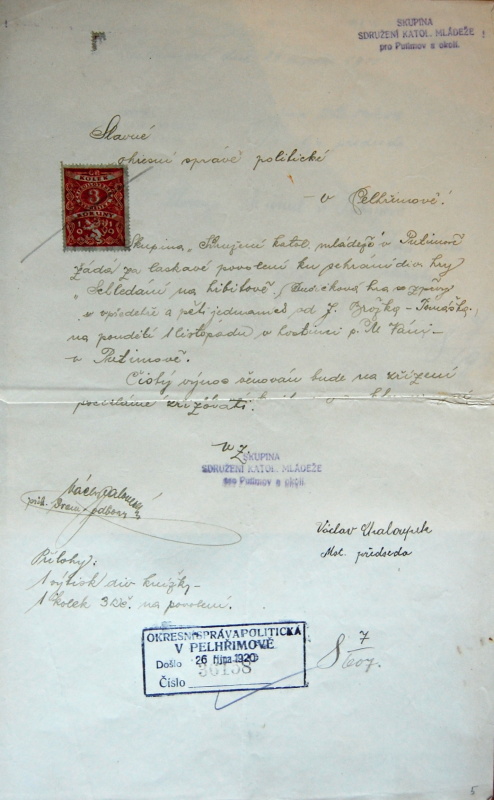 SKUPINA
SDRUŽENÍ KATOL. MLÁDEŽE
pro Putimov a okolí.
Slavné
okresní správě politické
v Pelhřimově.
KOLEK
3
KORUNY
1919
Skupina „Sdružení katol. mládeže v Putimově
žádá za laskavé povolení ku sehrání div. hry
„Shledání na hřbitově„ (Dušičková hra se zpěvy
v předehře a pěti jednáních od J. Brožka-Tomáška,
na pondělí 1 listopadu v hostinci p. M. Váni
v Putimově.
Čistý výnos věnován bude na zřízení
v Z
SKUPINA
SDRUŽENÍ KATOL. MLÁDEŽE
pro Putimov a okolí.
Václav Chaloupek
předseda
Přílohy:
1 výtisk div knížky
1 kolek 3 Kč. na povolení.
OKRESNÍ SPRÁVA POLITICKÁ
V PELHŘIMOVĚ
Došlo 26 října 1920
Číslo 30158
7
5